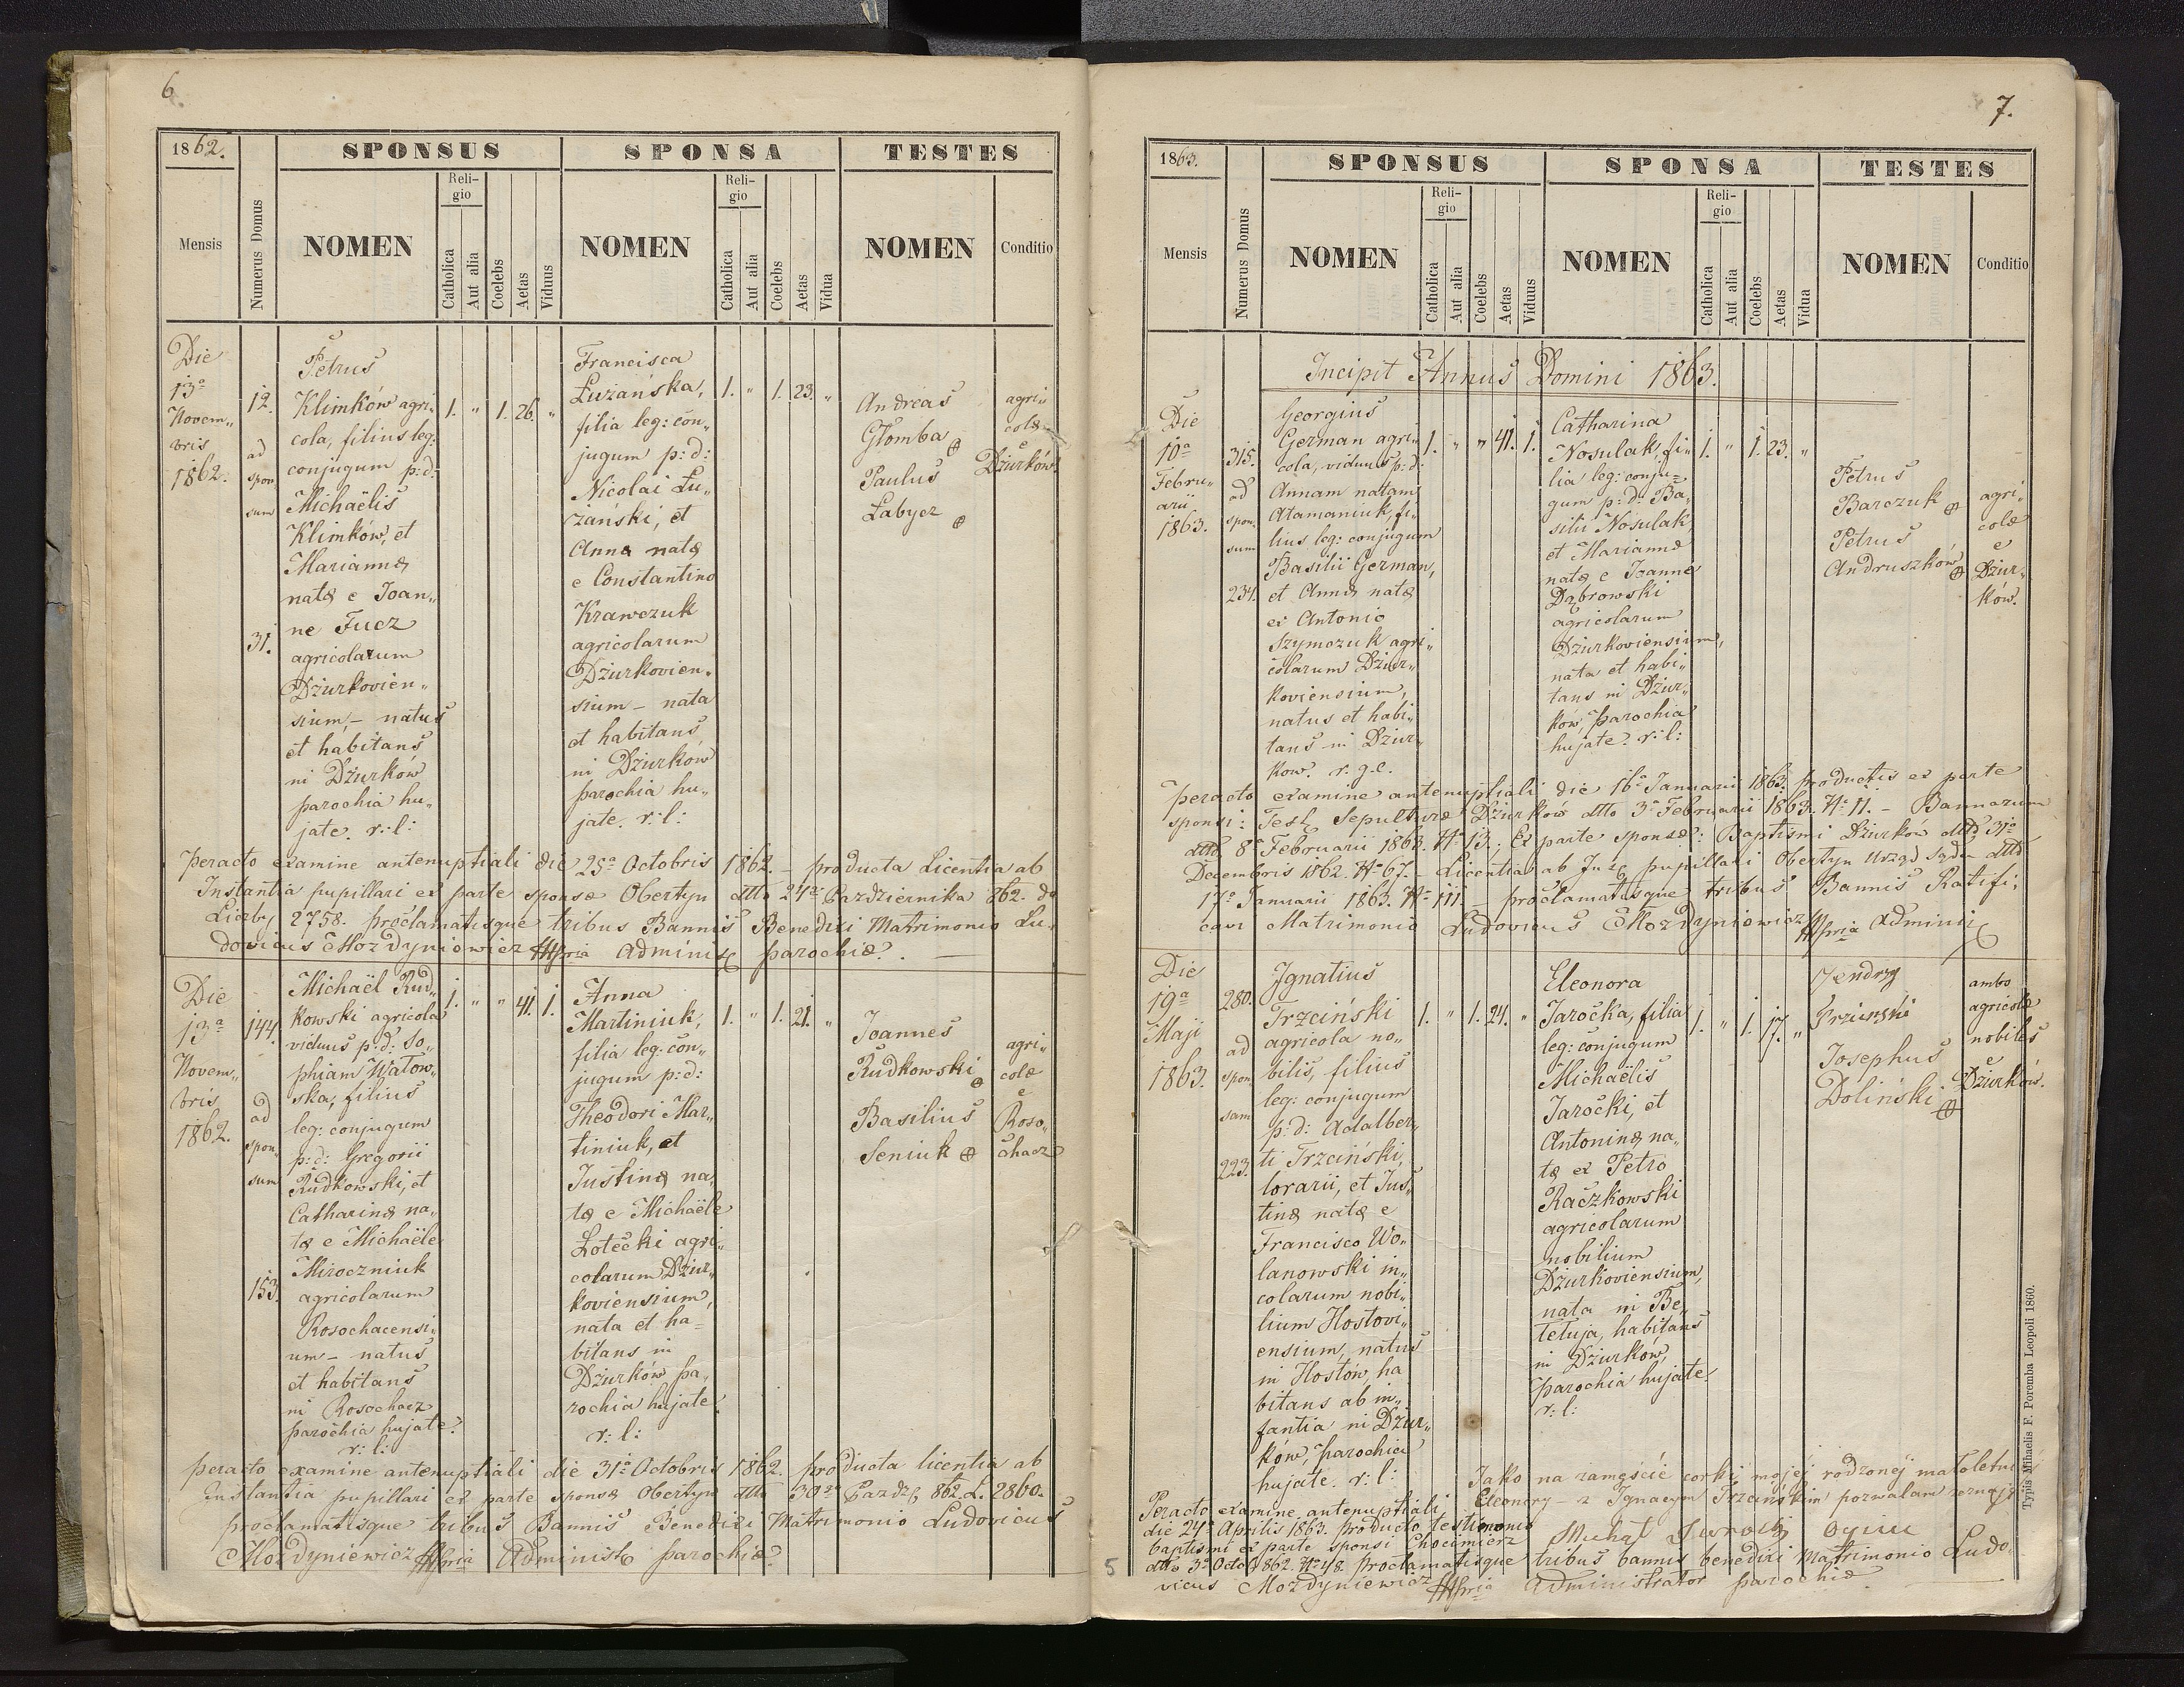 6.
1862.
SPONSUS
SPONSA
TESTES
Mensis
Numerus Domus
NOMEN
Reli-
gio
Catholica
Aut alia
Coelebs
Aetas
Viduus
NOMEN
Reli-
gio
Catholica
Aut alia
Coelebs
Aetas
Vidua
NOMEN
Conditio
Die
13ª
Novem„
bris
1862.
12.
ad
spon
sum
31.
Petrus
Klimków agri„
cola, filius leg:
conjugum p:d:
Michaëlis
Klimków, et
Mariannæ
natæ e Joan„
ne Fucz
agricolarum
Dżurkovien„
sium – natus
et habitans
in Dżurków
parochia hu„
jate. r: l:
1. „ 1. 26. „
Francisca
Łużańska,
filia leg: con„
jugum p: d:
Nicolai Łu„
żański, et
Annæ natæ
e Constantino
Krawczuk
agricolarum
Dżurkovien„
sium – nata
et habitans
in Dżurków
parochia hu„
jate. r: l:
1. „ 1. 23. „
Andreas
Głomba ⊕
Paulus
Łabycz ⊕
agri„
colæ
e
Dżurków.
Peracto examine antenuptiali die 25ª Octobris 1862. – producta Licentia ab
Instantia pupillari ex parte sponsæ Obertyn dtto 24ª Października 862. do
Liczby 2758. proclamatisque tribus Bannis Benedixi Matrimonio Lu„
dovicus Mozdyniewicz mpria Administr parochiæ.
Die
13ª
Novem„
bris
1862.
144.
ad
spon„
sum
153.
Michaël Rud„
kowski agricola
viduus p: d: So„
phiam Watow„
ska, filius
leg: conjugum
p: d: Gregorii
Rudkowski, et
Catharinæ na„
tæ e Michaële
Miroczniuk
agricolarum
Rosochacensi„
um – natus
et habitans
in Rosochacz
parochia hujate.
r: l:
1. „ „ 41. 1.
Anna
Martiniuk,
filia leg: con„
jugum p: d:
Theodori Mar„
tiniuk, et
Justinæ na„
tæ e Michaële
Łotecki agri„
colarum Dżur„
koviensium,
nata et ha„
bitans in
Dżurków pa„
rochia hujate.
r: l:
1. „ 1. 21. „
Joannes
Rudkowski ⊕
Basilius
Seniuk ⊕
agri„
colæ
e
Roso„
chacz
peracto examine antenuptiali die 31ª Octobris 1862. producta licentia ab
Instantia pupillari ex parte sponsæ Obertyn dtto 30ª Paźdz 862. L. 2860.
proclamatisque tribus Bannis Benedixi Matrimonio Ludovicus
Mozdyniewicz mpria Administr parochiæ.
7.
1863.
SPONSUS
SPONSA
TESTES
Mensis
Numerus Domus
NOMEN
Reli-
gio
Catholica
Aut alia
Coelebs
Aetas
Viduus
NOMEN
Reli-
gio
Catholica
Aut alia
Coelebs
Aetas
Vidua
NOMEN
Conditio
Incipit Annus Domini 1863.
Die
10ª
Febru„
arii
1863.
315.
ad
spon„
sum
234.
Georgius
German agri„
cola, viduus p: d:
Annam natam
Atamaniuk, fi„
lius leg: conjugum
Basilii German,
et Annæ natæ
ex Antonio
Szymczuk agri„
colarum Dżur„
koviensium,
natus et habi„
tans in Dżur„
ków. r. g.c.
1. „ „ 41. 1.
Catharina
Nosulak, fi„
lia leg: conju„
gum p: d: Ba„
silii Nosulak
et Mariannæ
natæ e Joanne
Dąbrowski
agricolarum
Dżurkoviensium,
nata et habi„
tans in Dżur„
ków, parochia
hujate. r: l:
1. „ 1. 23. „
Petrus
Barczuk ⊕
Petrus
Andruszków ⊕
agri„
colæ
e
Dżur„
ków.
Peracto examine antenuptiali die 16ª Januarii 1863. productis ex parte
sponsi: Test. Sepulturæ Dżurków dtto 3ª Februarii 1863. Nº 11. – Bannorum
dtto 8ª Februarii 1863. Nº 13. Ex parte sponsæ: Baptismi Dżurków dtto 31ª
Decembris 1862. Nº 67. – Licentia ab pupillari Obertyn Urząd Sądu dtto
17ª Januarii 1863. Nº 111. – proclamatisque tribus Bannis Ratifi„
cavi Matrimonio Ludovicus Mozdyniewicz mpria Administr
Die
19ª
Maji
1863.
280.
ad
spon„
sam
223.
Ignatius
Trzciński
agricola no„
bilis, filius
leg: conjugum
p: d: Adalber„
ti Trzciński,
lorarii, et Jus„
tinæ natæ e
Francisco Wo„
lanowski in„
colarum nobi„
lium Hostovi„
ensium, natus
in Hostów, ha
bitans ab in„
fantia in Dżur„
ków, parochia
hujate. r: l:
1. „ 1. 24. „
Eleonora
Jarocka, filia
leg: conjugum
Michaëlis
Jarocki, et
Antoninæ na„
tæ ex Petro
Raczkowski
agricolarum
nobilium
Dżurkoviensium,
nata in Be„
łeluja, habitans
in Dżurków,
parochia hujate.
r: l:
1. „ 1. 17. „
Jendrzy
Trzcinski
Josephus
Doliński ⊕
ambo
agricolæ
nobiles
e
Dżurków.
Peracto examine antenuptiali
die 24ª Aprilis 1863. producto testimonio
baptismi ex parte sponsi Chocimierz
dtto 3ª Octob 1862. Nº 48. proclamatisque tribus bannis benedixi Matrimonio Ludo„
vicus Mozdyniewicz mpria Administrator parochiæ.
Jako na zamęście corki mojej rodzonej małoletniej
Eleonory – z Ignacym Trzcińskim pozwalam zeznaję
Michał Jarocki Ojciec
5
Typis Mihaelis F. Poremba Leopoli 1860.